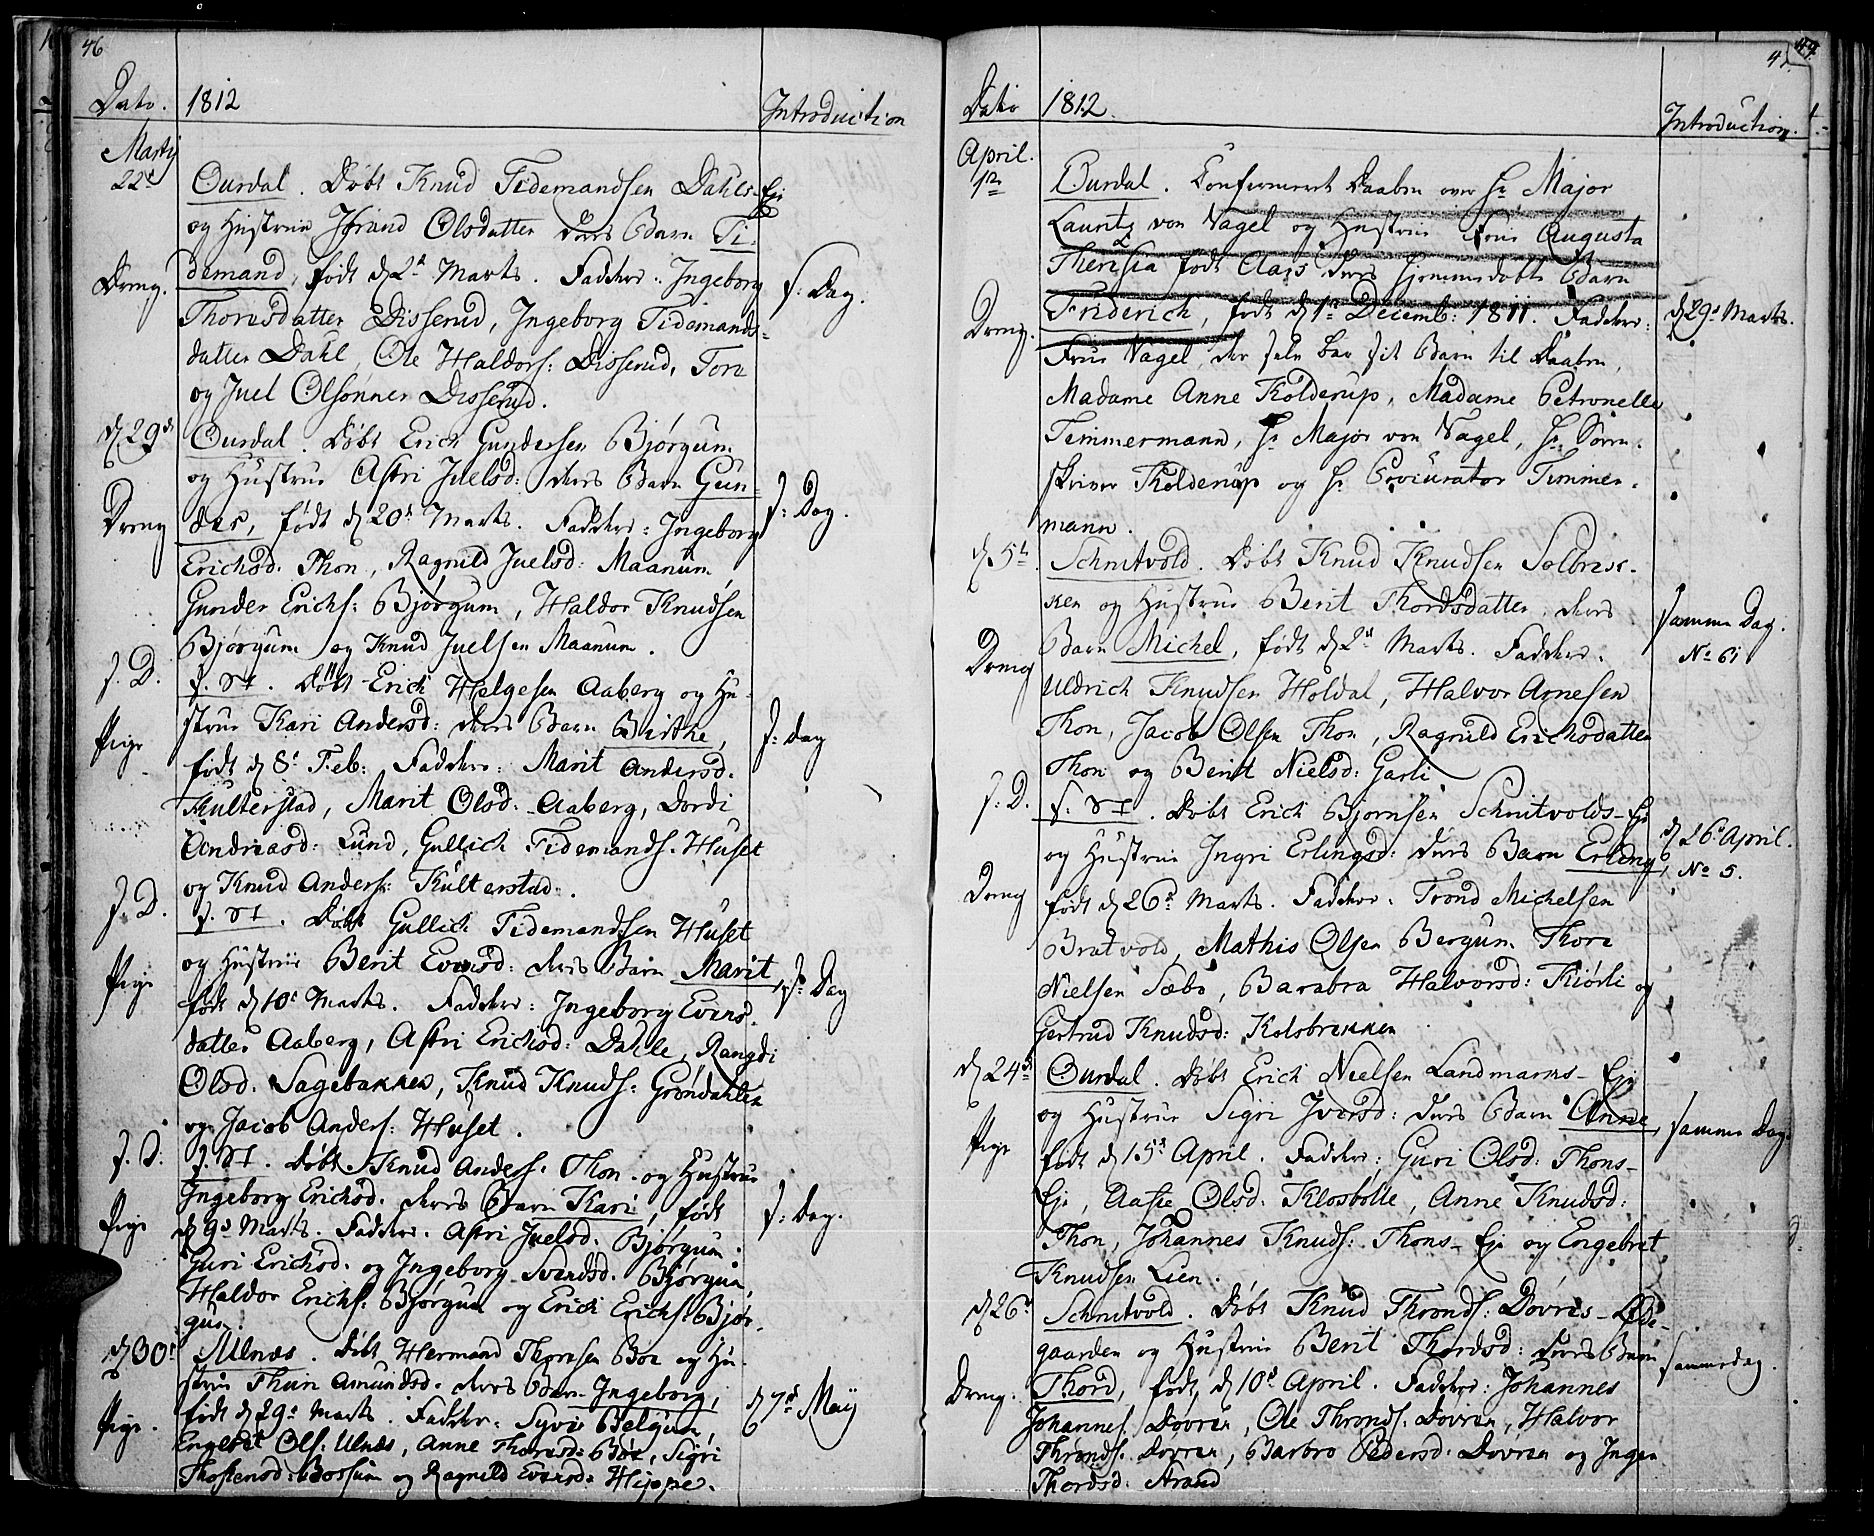 46
Dato. 1812 Introduction
Martij
22d Ourdal. Døbt Knud Tidemandsen Dahls-Eje
og Hustrue Jørand Olsdatter deres Barn Ti-
Dreng. demand, født d 2d Marts. Faddere: Ingeborg s: Dag.
Thoresdatter Disserud, Ingeborg Tidemands-
datter Dahl, Ole Haldors: Disserud, Tore
og Juel Olsønner Disserud.
d 29d Ourdal. Døbt Erich Gundersen Bjørgum
og Hustrue Astri Juelsd: deres Barn Gun-
Dreng der, født d 20d Marts. Faddere: Ingeborg s: Dag.
Erichsd. Thon, Ragnild Juelsd: Maanum,
Gunder Erichs: Bjørgum, Haldor Knudsen
Bjørgum og Knud Juelsen Maanum.
s. D. s. St. Døbt Erich Helgesen Aaberg og Hu-
Pige strue Kari Andersd: deres Barn Birthe, s: Dag
født d 8d Feb: Faddere: Marit Andersd.
Kulterstad, Marit Olsd. Aaberg, Dordi
Andreasd: Lund, Gullich Tidemands. Huset
og Knud Anders: Kulterstad.
s. D. s. St. Døbt Gullich Tidemandsen Huset
Pige og Hustrue Berit Evensd: deres Barn Marit, s: Dag
født d 10d Marts. Faddere: Ingeborg Evens-
datter Aaberg, Astri Erichsd: Dahle, Rangdi
Olsd. Sagebakken, Knud Knuds: Grøndahlen
og Jacob Anders: Huset.
s. D. s. St. Døbt Knud Anders. Thon og Hustrue
Pige Ingeborg Erichsd. deres Barn Kari, født s: Dag.
d 9d Marts. Faddere. Astri Juelsd. Bjørgum.
Guri Erichsd. og Ingeborg Svendsd. Bjørgum
Haldor Erichs: Bjørgum og Erich Erichs: Bjør-
gum.
d 30d Ulnæs. Døbt Hermand Thoresen Bøe og Hu-
strue Thuri Amundsd. deres Barn Ingeborg, d 7d Maij
Pige. født d 29d Marts. Faddere: Syver Belgum,
Engebret Ols: Ulnæs, Anne Thoresd: Bøe, Sigri
Thostensd: Bossum og Ragnild Evensd: Hippe.
47.
Dato 1812. Introduction.
April.
1de Ourdal. Confirmeret Daaben over Hr Major
Lauritz von Nagel og Hustrue Frue Augusta
Theresia født Clais deres hjemmedøbte Barn
Dreng. Friderich, født d 1de Decemb: 1811. Faddere: d 29d Marts.
Frue Nagel, der selv bar sit Barn til Daaben,
Madame Anne Kolderup, Madame Petronelle
Timmermann, Hr Major von Nagel, Hr Soren-
skriver Kolderup og Hr Procurator Timmer-
mann.
d 5te Schnitvold. Døbt Knud Knudsen Solbræk-
ken og Hustrue Berit Thordsdatter deres samme Dag.
Dreng Barn Michel, født d 2d Marts. Faddere. No 61
Uldrich Knudsen Holdal, Halvor Arnesen
Thon, Jacob Olsen Thon, Ragnild Erichsdatter
Thon og Berit Nielsd: Garli
s. D. s. St. Døbt Erich Bjørnsen Schnitvolds-Eje
og Hustrue Ingri Erlingsd: deres Barn Erling, d 26d April.
Dreng født d 26d Marts. Faddere. Trond Michelsen No 5.
Bratvold, Mathis Olsen Bergum Thore
Nielsen Sæbø, Barabra Halvorsd: Kiørli og
Gertrud Knudsd: Kolsbrekken
d 24d Ourdal. Døbt Erich Nielsen Landmarks-Eje
og Hustrue Sigri Iversd: deres Barn Anne, samme Dag.
Pige født d 15d April. Faddere: Guri Olsd: Thons-
Eje, Aaste Olsd. Klosbølle, Anne Knudsd:
Thon, Johannes Knuds: Thons-Eje og Engebret
Knudsen Lien.
d 26d Schnitvold. Døbt Knud Thronds: Dovres-Øde-
gaarden og Hustrue Berit Thordsd: deres Barn sammedag.
Dreng. Thord, født, d 10d April. Faddere: Johannes
Johannes. Dovren, Ole Thronds: Dovren, Halvor
Thronds. Dovren, Barbro Pedersd: Dovren og Inger
Thordsd. Strand